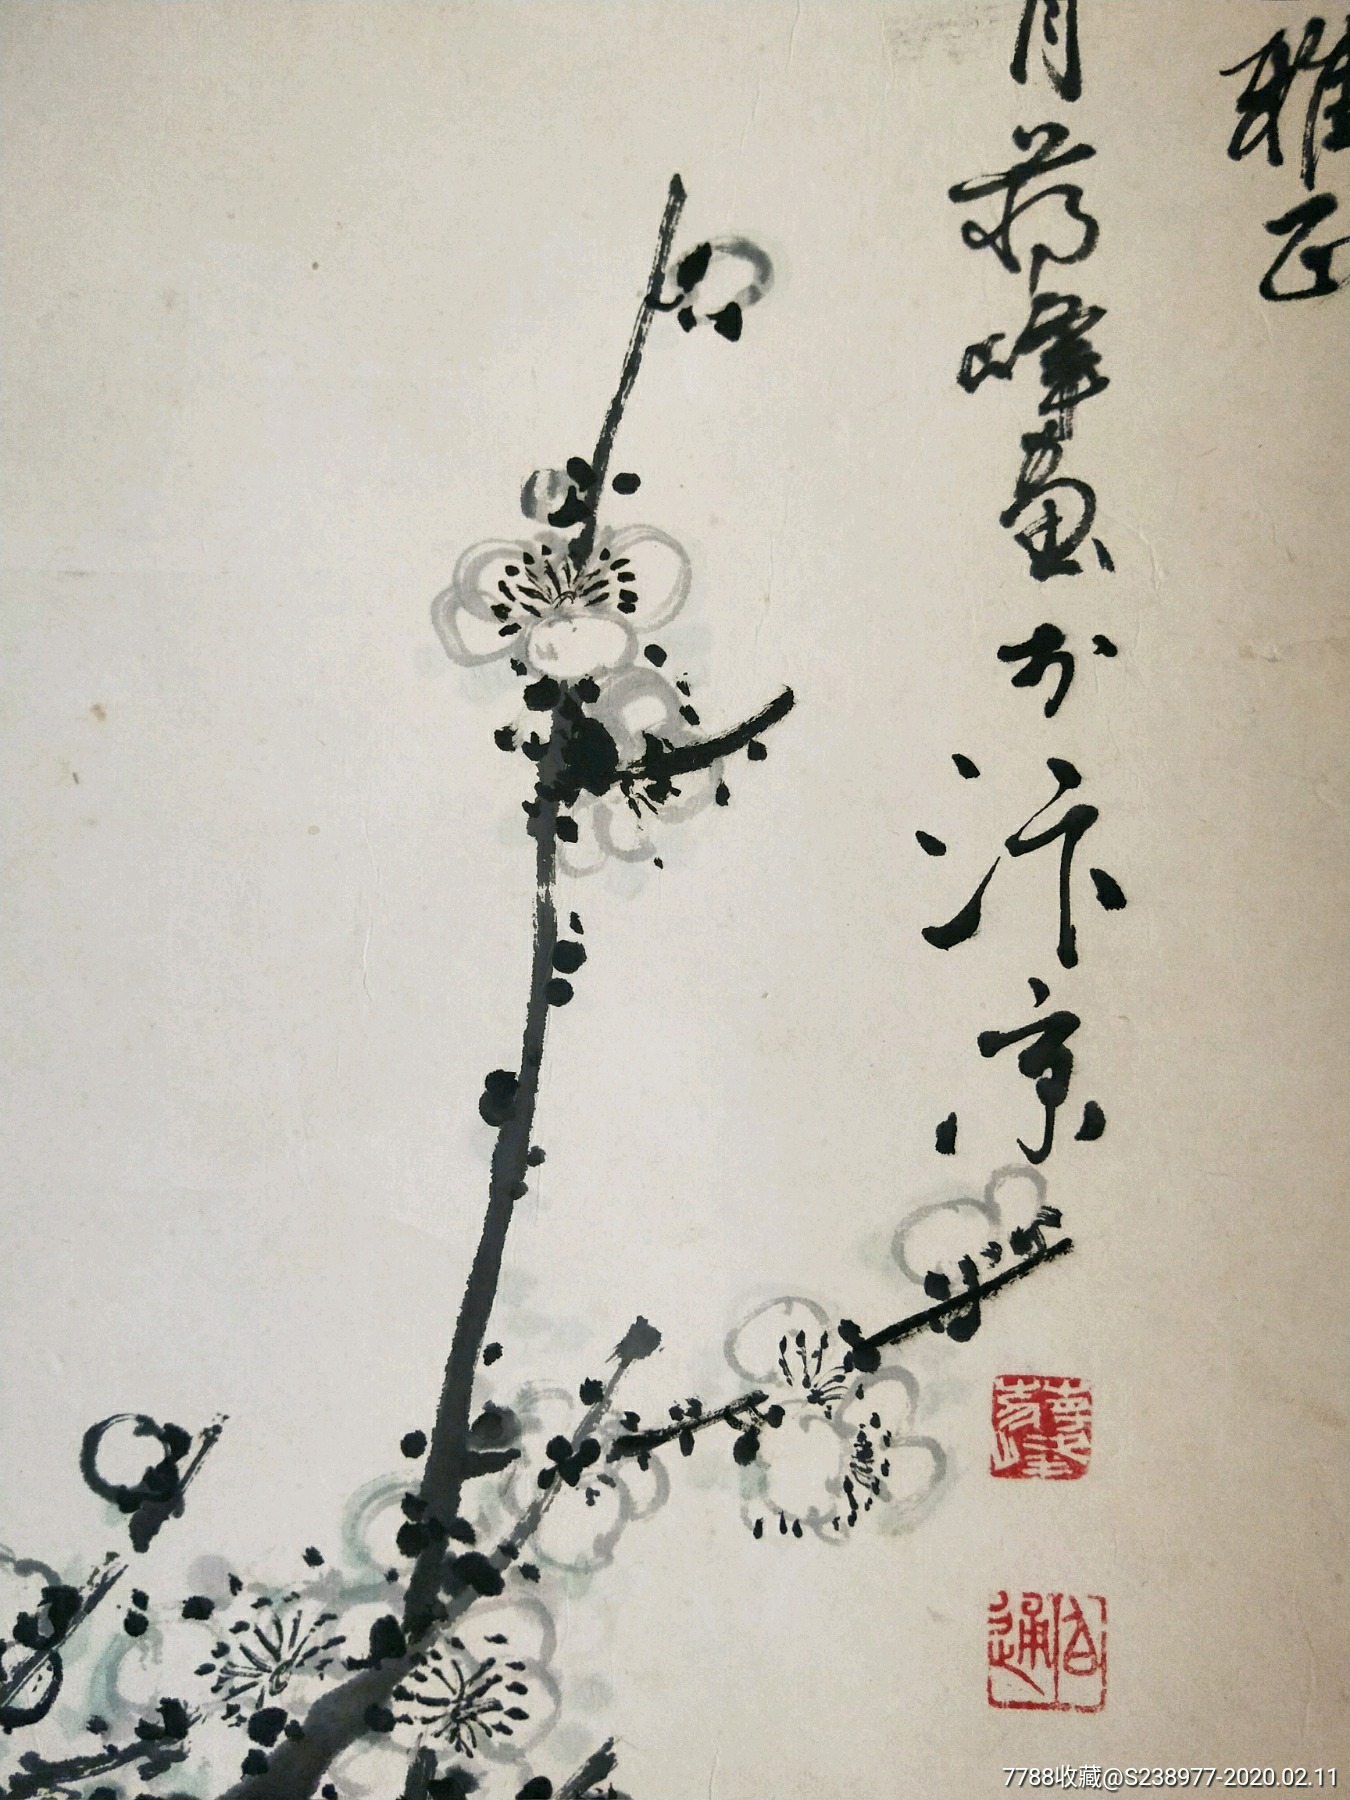 雅正
月峰畫於汴京
7788收藏@S238977-2020.02.11